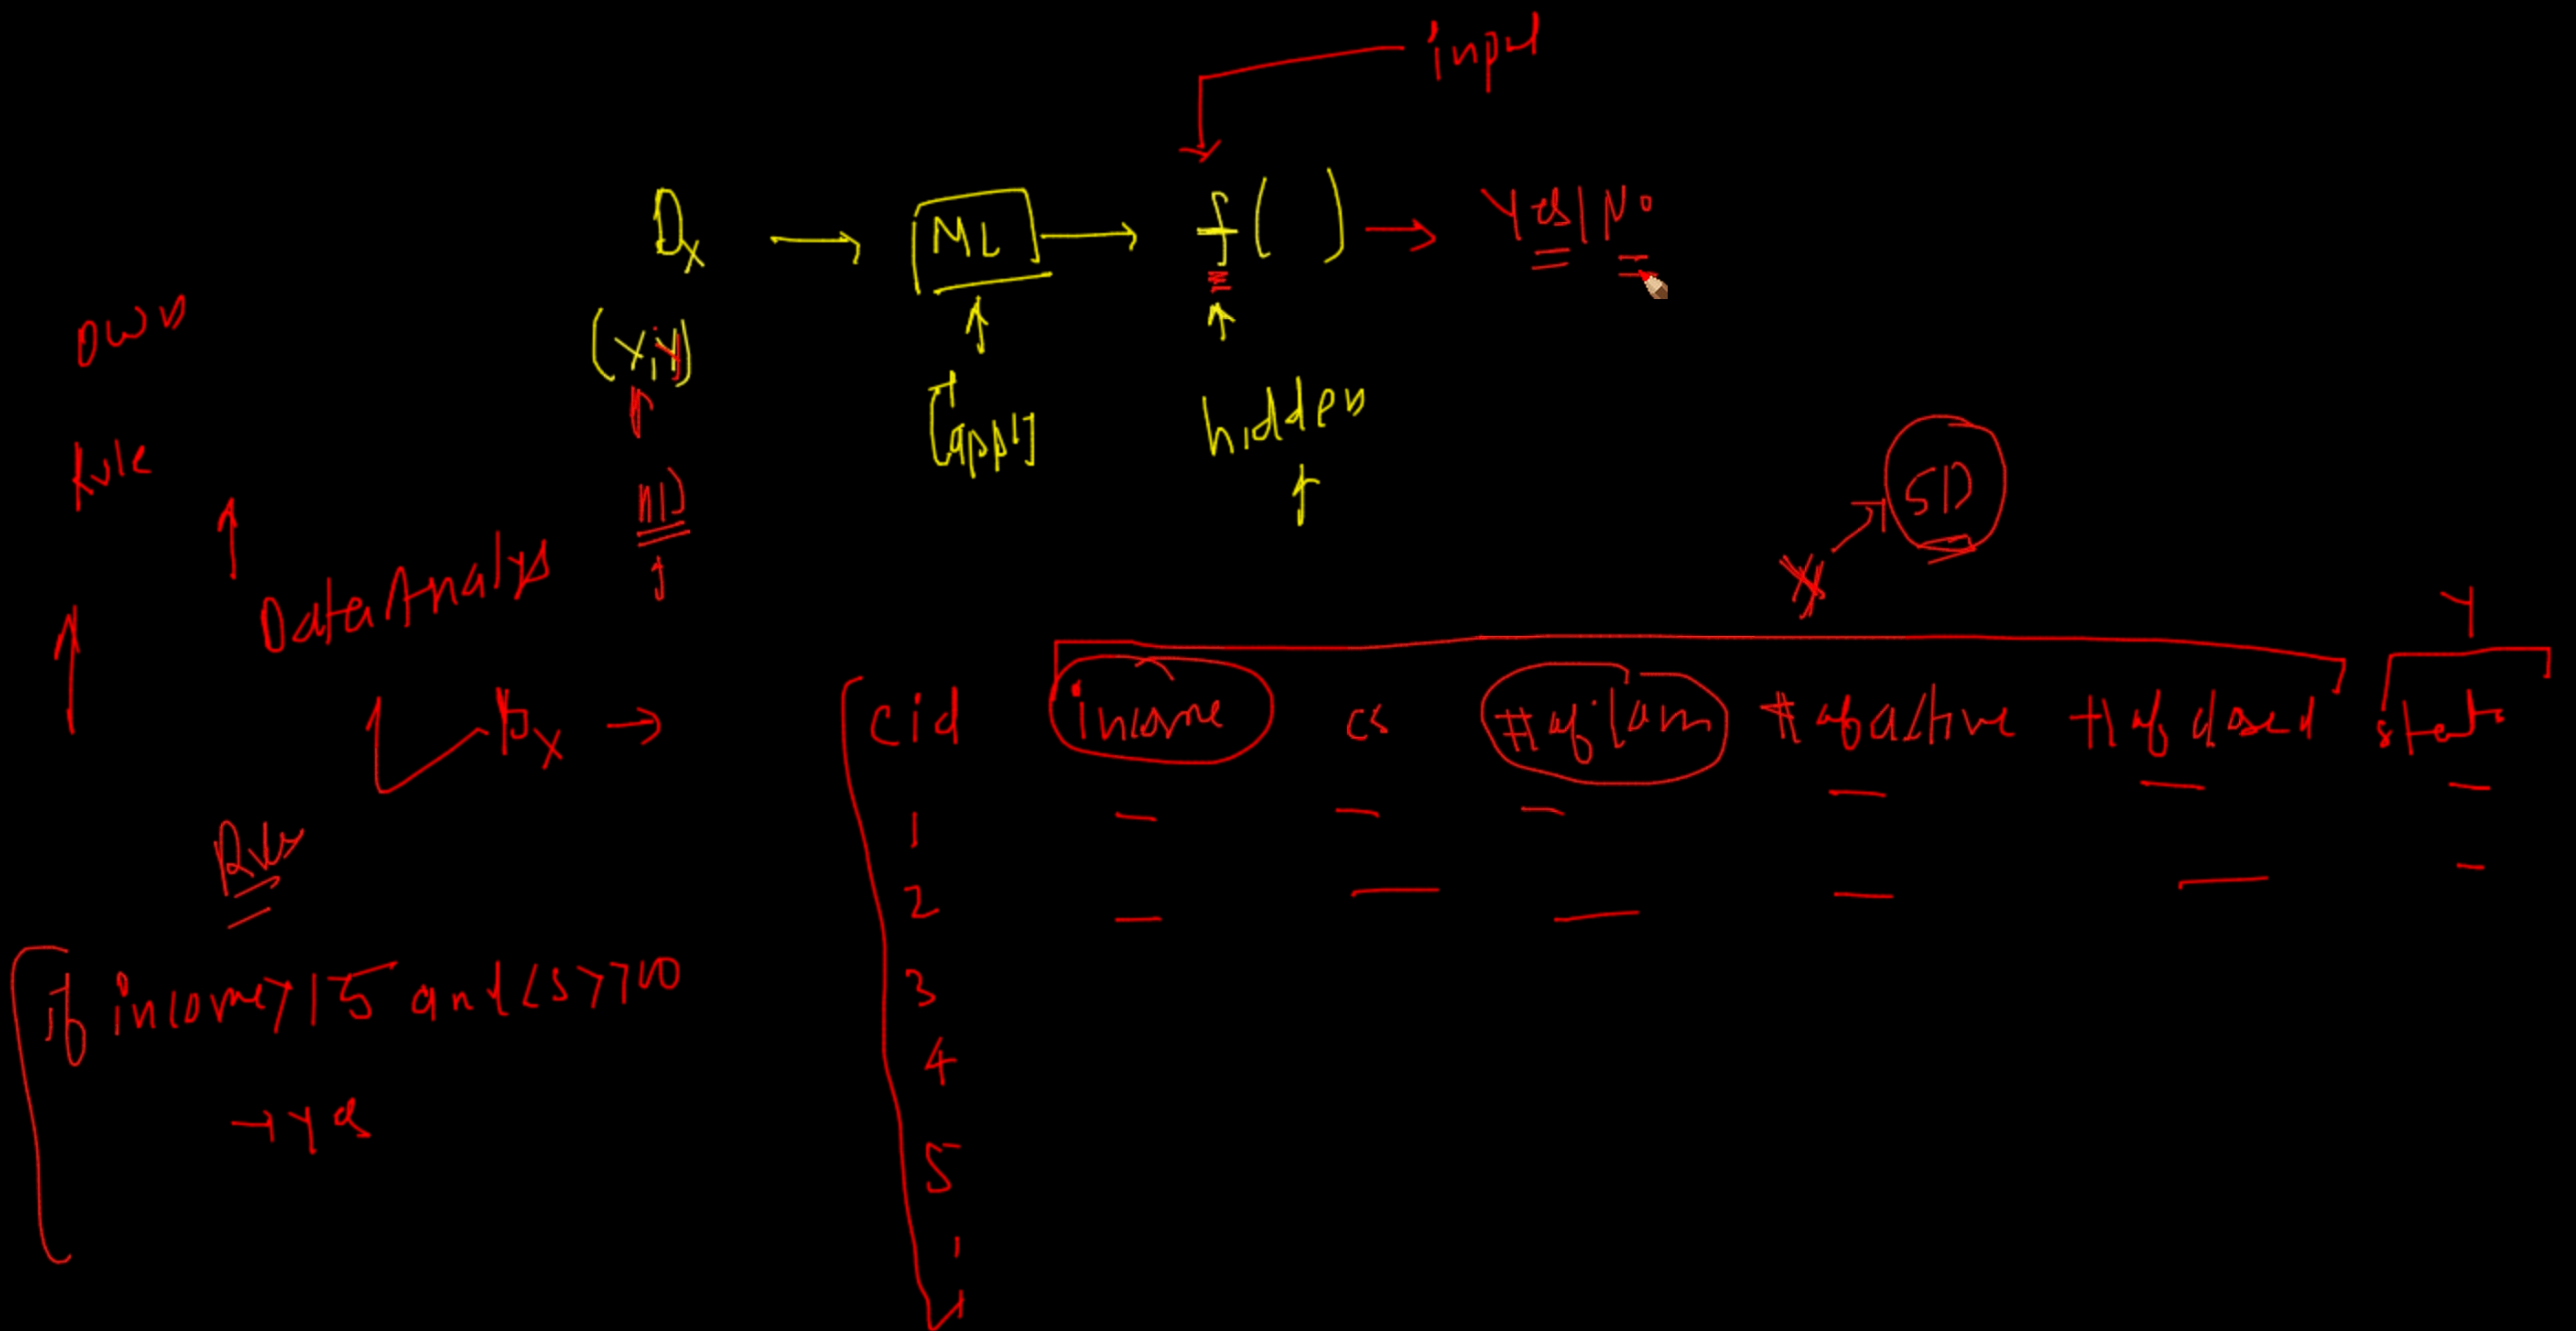 input
Dx → ML → f( ) → Yes|No
(x,y)
own
[appl]
hidden
Rule
nD
5D
Data Analys
X
Y
Dx →
cid income cs # of loan # of active # of closed
1
2
3
4
5
Rules
if income>15 and cs>700
→ yes